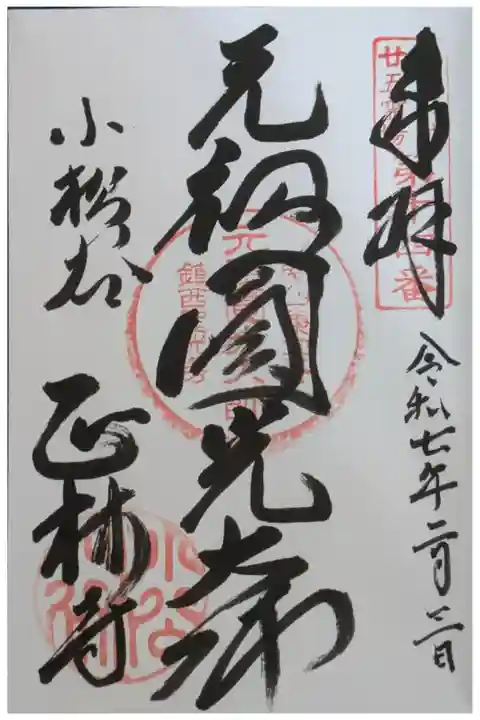 奉拝
令和七年二月三日
元祖圓光大師
小松谷
正林寺
廿五霊場第十四番